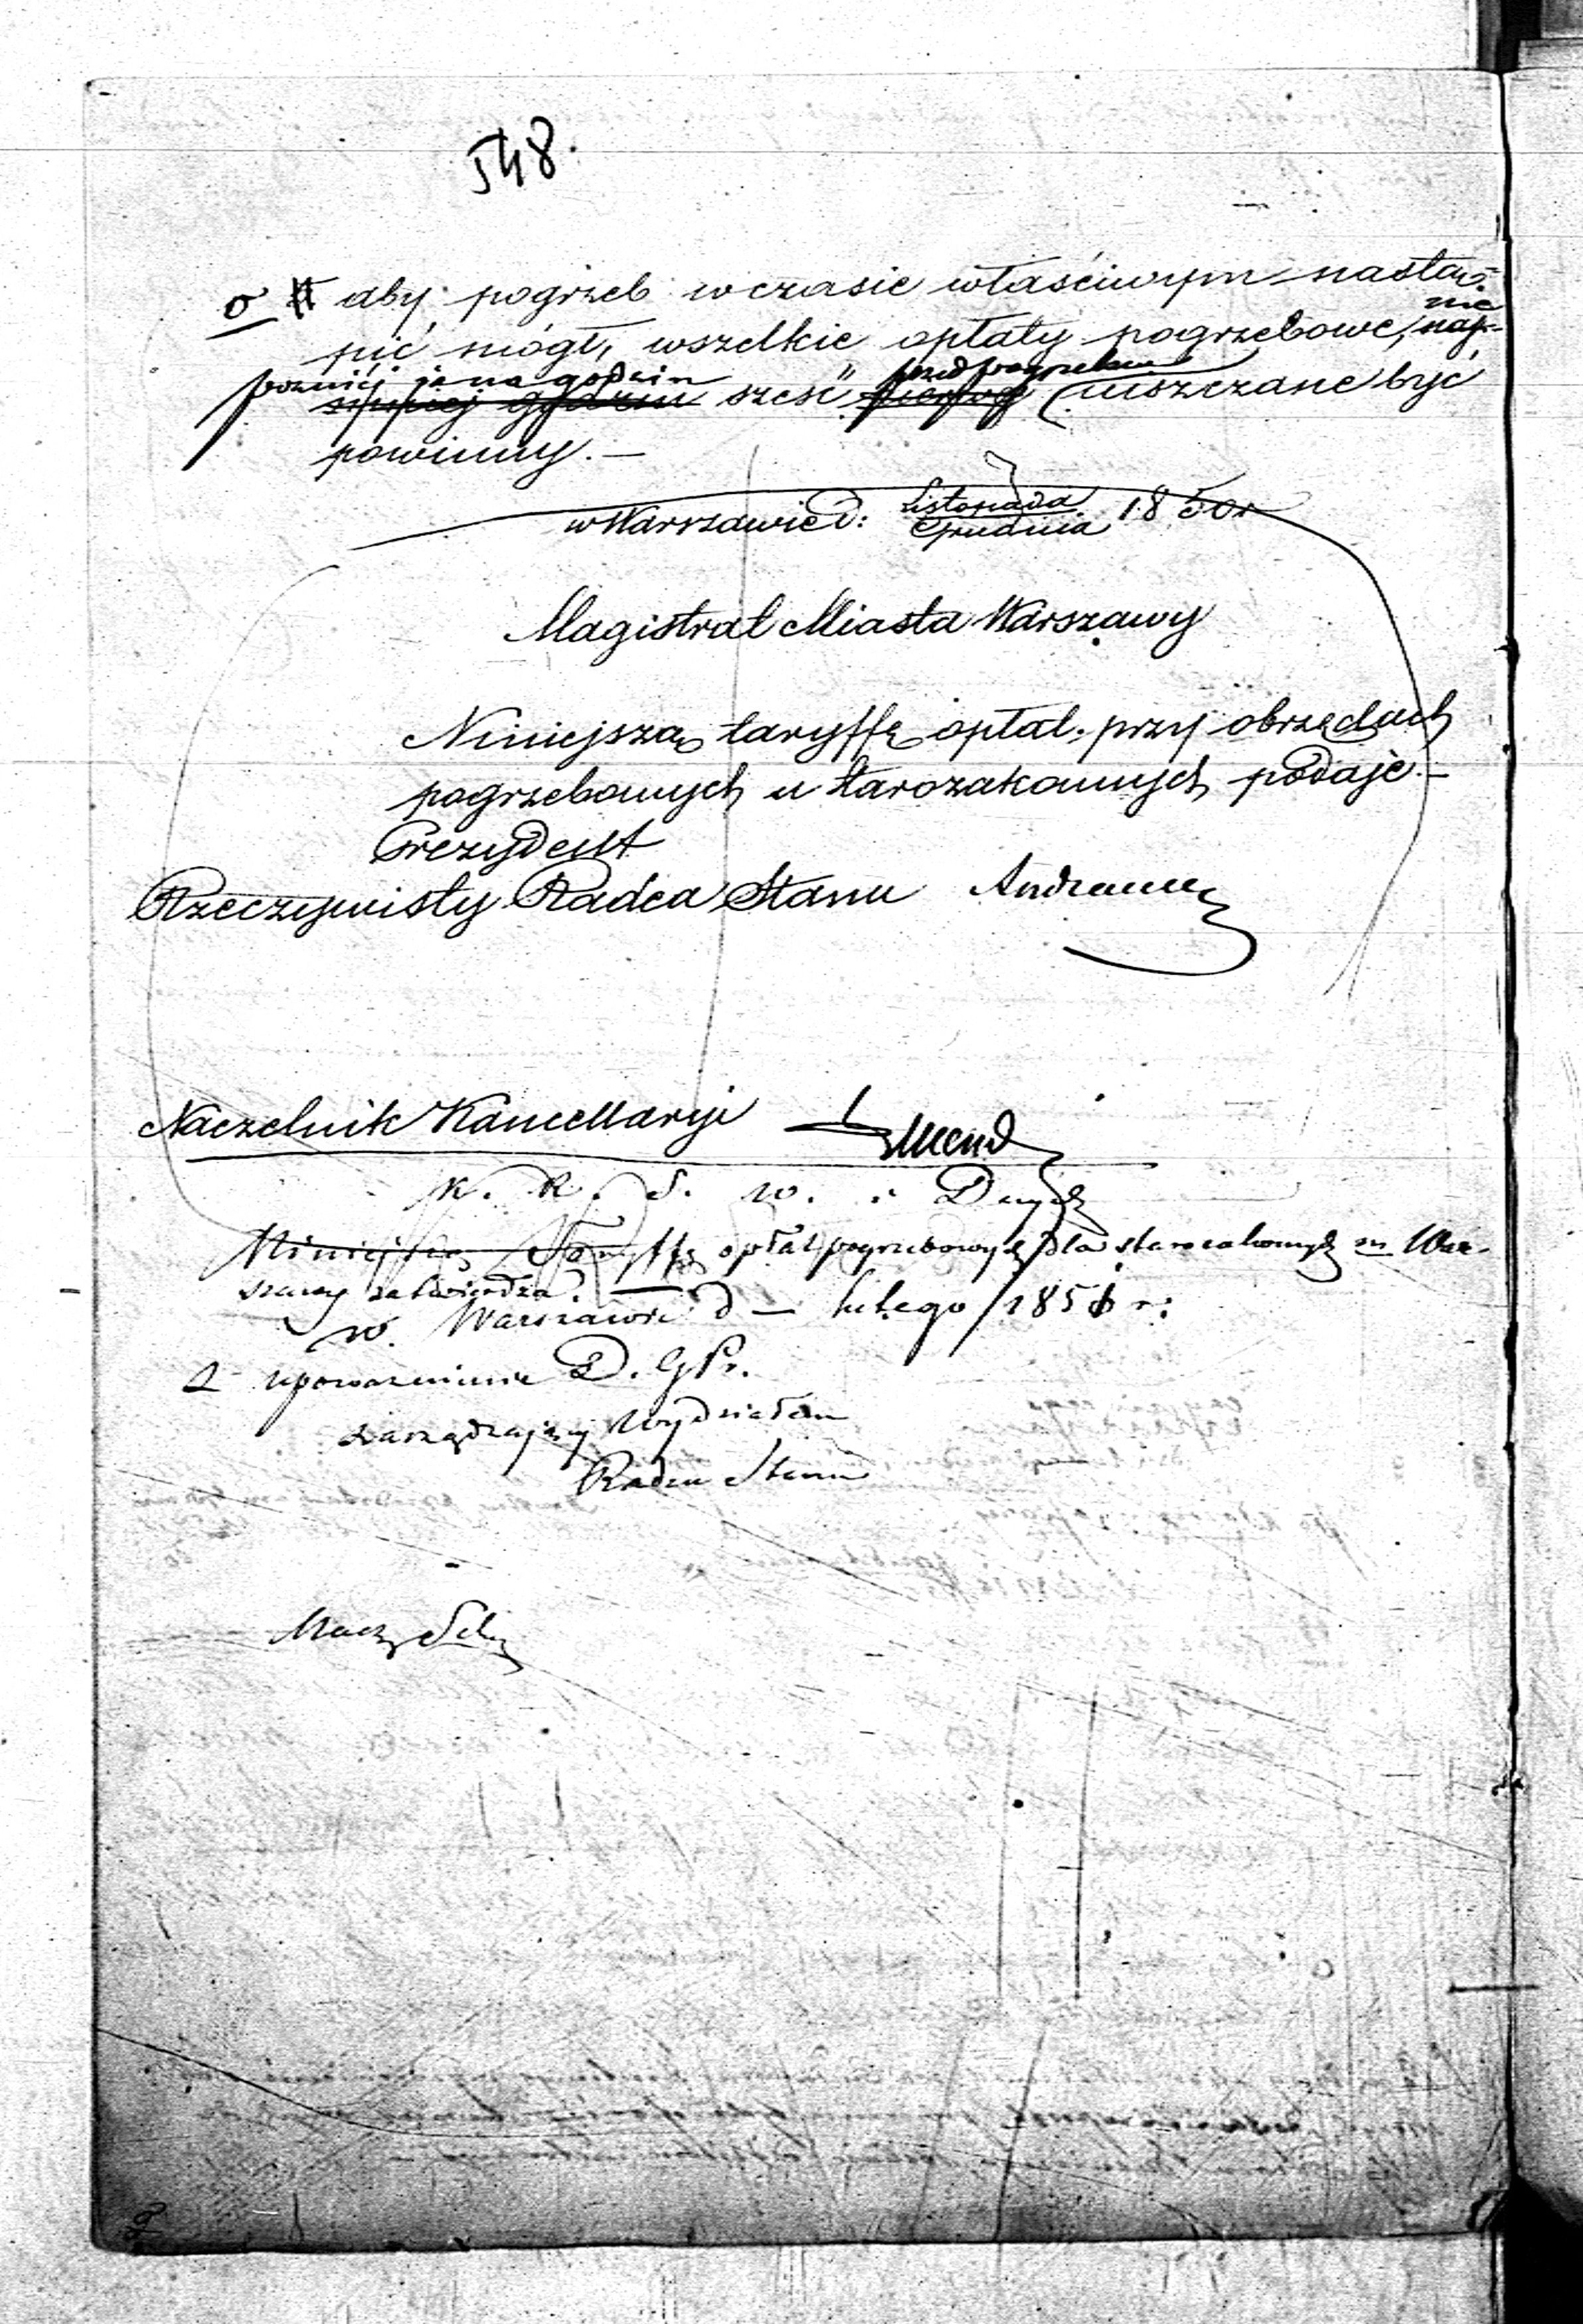 548.
o aby pogrzeb w czasie właściwym nastą-
pić mógł, wszelkie opłaty pogrzebowe, nie naj-
później ja na godzin sześć przed pogrzebem uiszczane być
powinny. —
w Warszawie d: Listopada/Grudnia 1850 r
Magistrat Miasta Warszawy
Niniejszą taryffę opłat przy obrzędach
pogrzebowych u starozakonnych podaje. —
Prezydent
Rzeczywisty Radca Stanu
Naczelnik Kancellaryi
K. R. S. W. i Duch
Niniejszą Taryffę opłat pogrzebowych dla starozakonnych m War-
szawy zatwierdza. —
w. Warszawie d — lutego 1851 r:
Z upoważnienia D. G Pr.
zarządzający Wydziałem
Radca Stanu